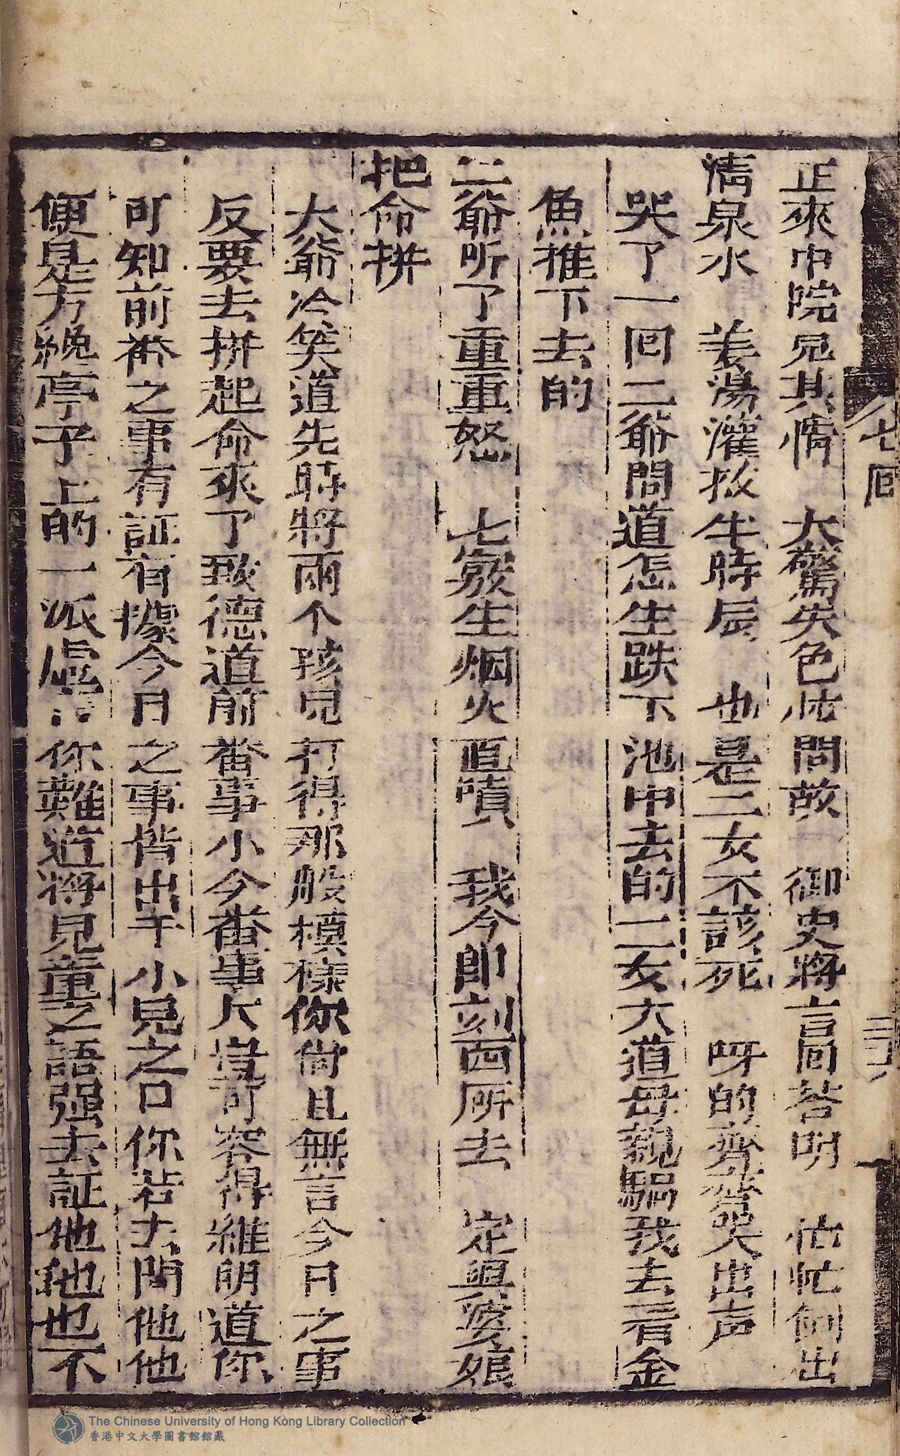 正來中院見其情　大驚失色忙問故　御史將言回答明　忙忙倒出
清泉水　姜湯灌救半時辰　也是二女不該死　呀的齊齊哭出声
哭了一回二爺問道怎生跌下池中去的二女大道母親騙我去看金
魚推下去的
二爺听了重重怒　七竅生烟火直噴　我今即刻西厢去　定與婆娘
把命拼
大爺冷笑道先時將兩个孩兒打得那般模樣你尚且無言今日之事
反要去拼起命來了致德道前番事小今番事大豈可容得維明道你
可知前番之事有証有據今日之事皆出于小兒之口你若去問他他
便是方纔亭子上的一派虛言你難道將兒童之語强去証他他也不
七回
三六
The Chinese University of Hong Kong Library Collection
香港中文大學圖書館館藏